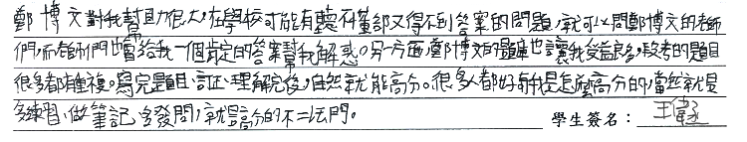 鄭博文對我幫助很大,在學校可能有聽不董卻又得不到答案的問題,就可以問鄭博文的老師
們,而老師們也常給我一個肯定的答案幫我解惑。另一方面,鄭博文的題庫也讓我受益良多,段考的題目
很多都有重複。寫完題目、訂正、理解完後,自然就能高分。很多人都好奇我是怎麼高分的,當然就是
多練習、做筆記、多發問,就是高分的不二法門。
學生簽名:王偉丞